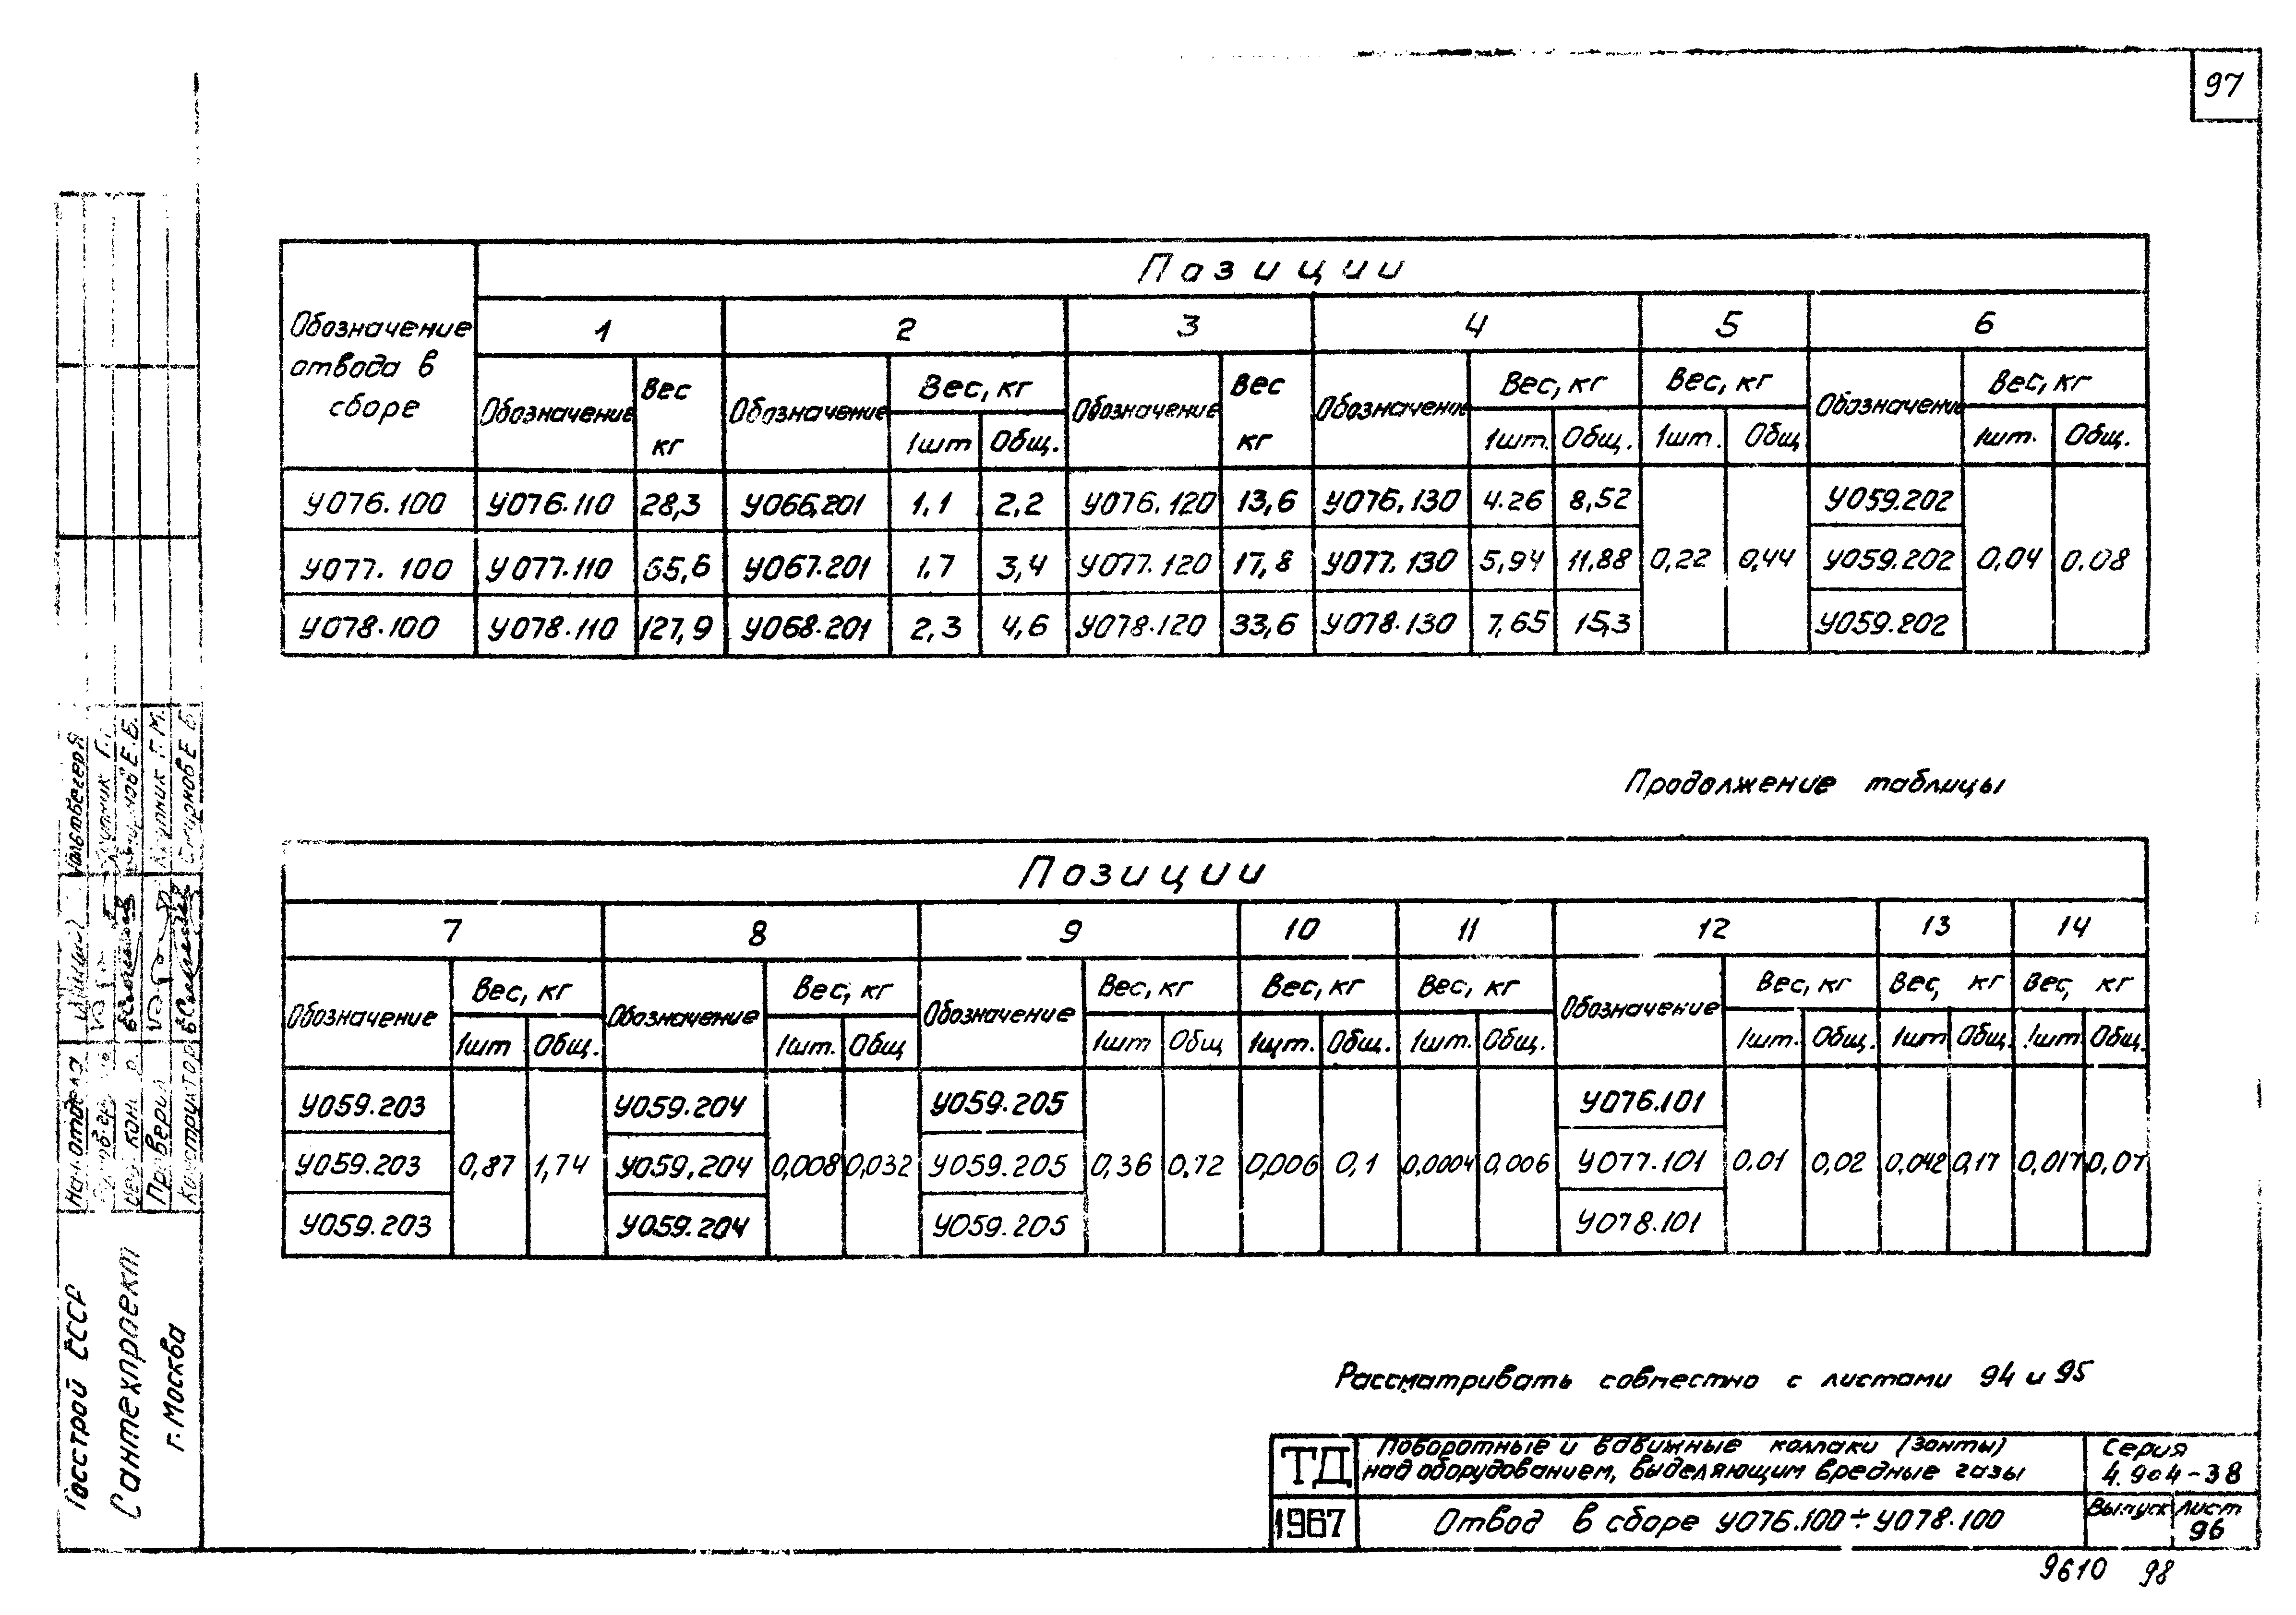 97
Позиции
Обозначение отвода в сборе
1 2 3 4 5 6
Обозначение Вес кг Обозначение Вес, кг Обозначение Вес кг Обозначение Вес, кг Вес, кг Обозначение Вес, кг
1шт Общ. 1шт. Общ. 1шт. Общ 1шт. Общ.
У076.100 У076.110 28,3 У066.201 1,1 2,2 У076.120 13,6 У076.130 4.26 8,52 У059.202
У077.100 У077.110 65,6 У067.201 1,7 3,4 У077.120 17,8 У077.130 5,94 11.88 0,22 0,44 У059.202 0,04 0.08
У078.100 У078.110 127,9 У068.201 2,3 4,6 У078.120 33,6 У078.130 7,65 15,3 У059.202
Продолжение таблицы
Позиции
7 8 9 10 11 12 13 14
Обозначение Вес, кг Обозначение Вес, кг Обозначение Вес, кг Вес, кг Вес, кг Обозначение Вес, кг Вес, кг Вес, кг
1шт Общ. 1шт. Общ 1шт Общ 1шт. Общ. 1шт. Общ. 1шт. Общ. 1шт Общ. 1шт Общ.
У059.203 У059.204 У059.205 У076.101
У059.203 0,87 1,74 У059.204 0,008 0,032 У059.205 0,36 0,72 0,006 0,1 0,0004 0,006 У077.101 0.01 0,02 0,042 0,17 0,017 0,07
У059.203 У059.204 У059.205 У078.101
Рассматривать совместно с листами 94 и 95
ТД Поворотные и вдвижные колпаки (зонты)
над оборудованием, выделяющим вредные газы
Серия
4.904-38
1967 Отвод в сборе У076.100÷У078.100
Выпуск Лист
96
9610 98
Госстрой СССР
Сантехпроект
г. Москва
Нач. отдела
Проверил
Конструктор Смирнов Е Б